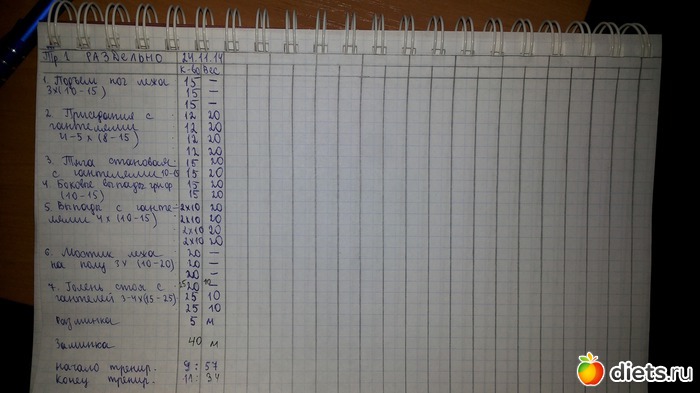 Тр 1 РАЗДЕЛЬНО 24.11.14
к-во Вес
1. Подъем ног лежа 15 –
3х(10-15) 15 –
15 –
2. Приседания с 12 20
гантелями 12 20
4-5 х (8-15) 12 20
12 20
3. Тяга становая 15 20
с гантелями 10-15 15 20
4. Боковые выпады гриф 15 20
(10-15) 15 20
5. Выпады с ганте- 2х10 20
лями 4х (10-15) 2х10 20
2х10 20
2х10 20
6. Мостик лежа 20 –
на полу 3х (10-20) 20 –
20 –
7. Голень стоя с 25 20
гантелей 3-4х(15-25) 25 10
25 10
Разминка 5 м
Заминка 40 м
начало тренир. 9 : 57
конец тренир. 11 : 34
diets.ru